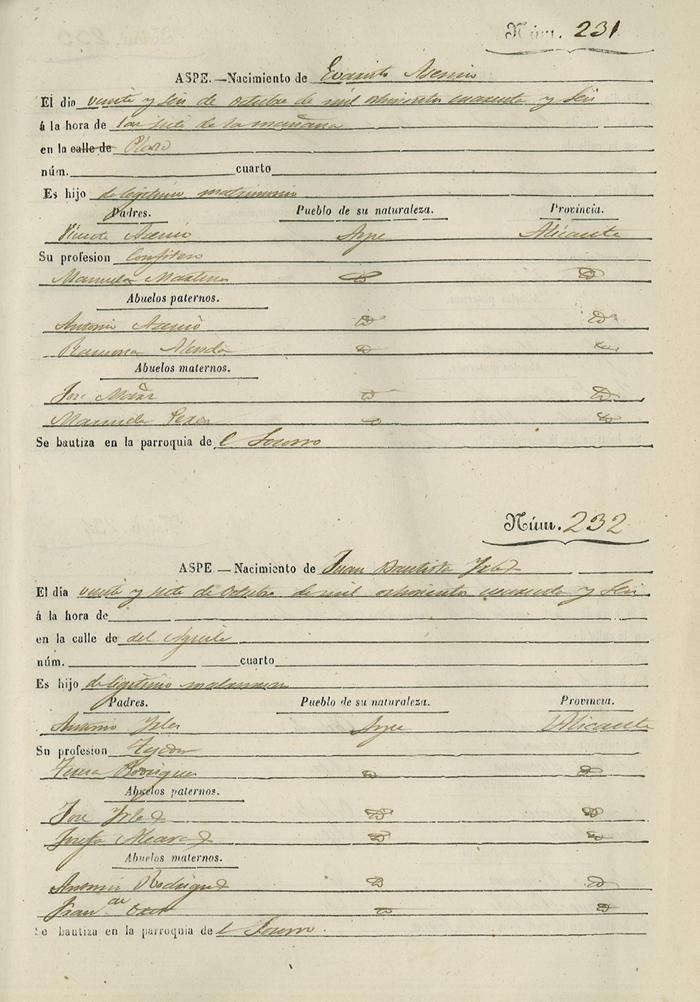 Núm. 231
ASPE.—Nacimiento de Evaristo Asensio
El día veinte y seis de octubre de mil ochocientos cuarenta y seis
á la hora de las siete de la mañana
en la calle de Plaza
núm. cuarto
Es hijo de legitimo matrimonio
Padres. Pueblo de su naturaleza. Provincia.
Vicente Asensio Aspe Alicante
Su profesion Confitero
Manuela Martinez
Abuelos paternos.
Antonio Asensio
Ramona
Abuelos maternos.
Jose
Manuela
Se bautiza en la parroquia de el Socorro
Núm. 232
ASPE.—Nacimiento de Juan Bautista
El día veinte y siete de octubre de mil ochocientos cuarenta y seis
á la hora de
en la calle de del
núm. cuarto
Es hijo de legitimo
Padres. Pueblo de su naturaleza. Provincia.
Antonio Aspe Alicante
Su profesion
Teresa Rodriguez
Abuelos paternos.
Jose
Josefa
Abuelos maternos.
Antonio Rodriguez
Se bautiza en la parroquia de el Socorro.